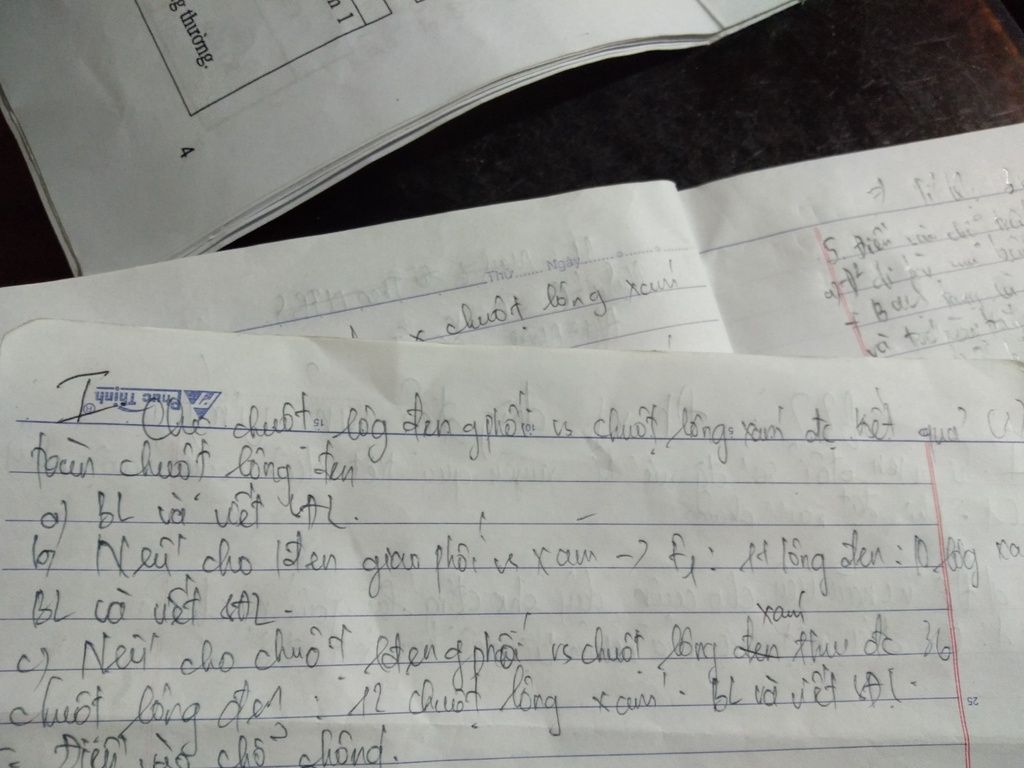 n 1
g thường.
4
Thứ ...... Ngày ......
x chuột lông xám
I
Phúc Thịnh
Cho chuột lôg đen gphối vs chuột lông xám đc kết quả
toàn chuột lông đen
a) BL và viết SĐL.
b) Nếu cho lđen giao phối vs xám -> F1: 11 lông đen : 10 lôg xá
BL và viết SĐL.
xám
c) Nếu cho chuột lđen gphối vs chuột lông đen thu đc 36
chuột lông đen : 12 chuột lông xám. BL và viết SĐL.
25
Điền vào chỗ chống.